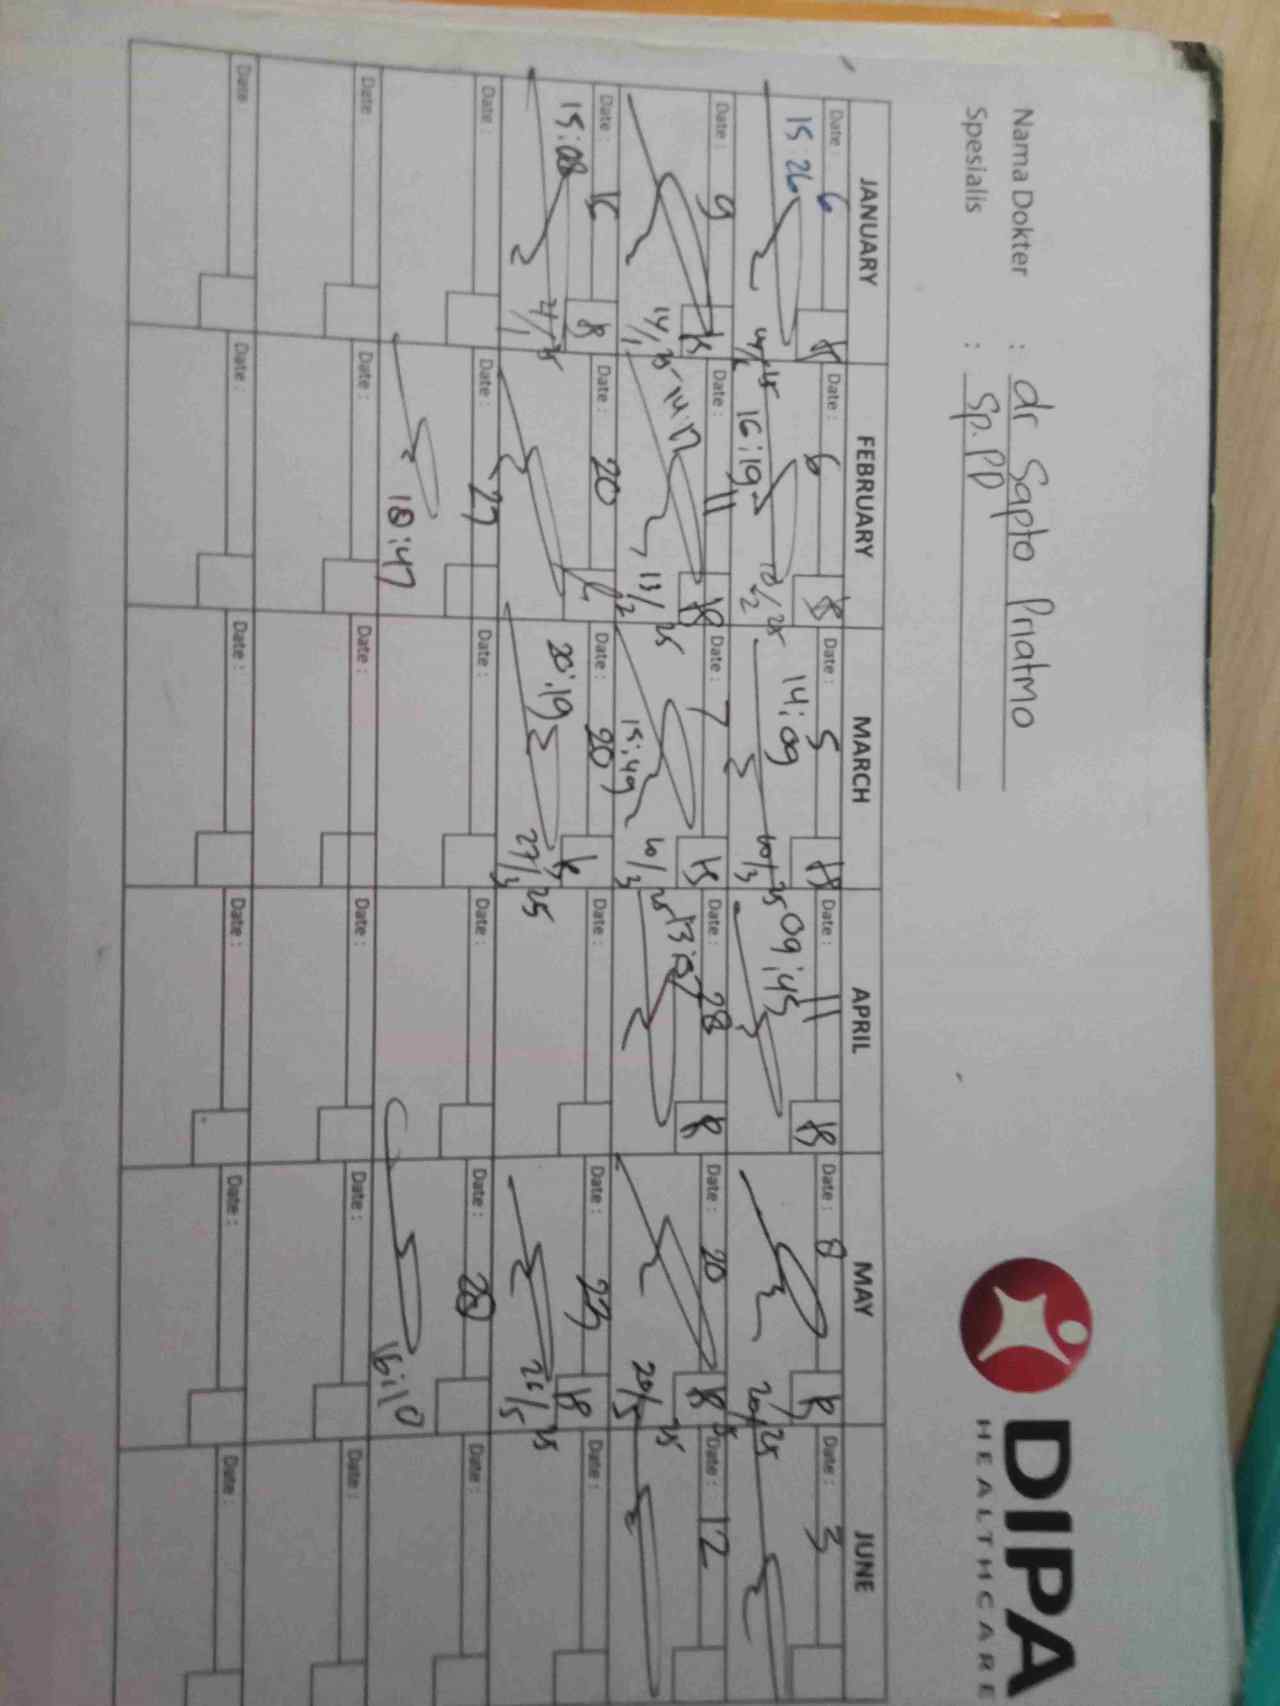 DIPA
HEALTHCARE
Nama Dokter : dr Sapto Priatmo
Spesialis : Sp.PD
JANUARY FEBRUARY MARCH APRIL MAY JUNE
Date : 6 Date : 6 Date : 5 Date : 11 Date : 8 Date : 3
15:26 16:19 14:09 09:45
10/2 25 10/3 25 20/5 25
Date : 9 Date : 11 Date : 7 Date : 28 Date : 20 Date : 12
15:49
14/1 25 13/2 25 10/3 25 20/5 25
Date : 16 Date : 20 Date : 20 Date : Date : 23 Date :
15:08 20:19
21/1 25 27/3 25 26/5 25
Date : Date : 27 Date : Date : Date : 28 Date :
18:47 16:10
Date : Date : Date : Date : Date : Date :
Date : Date : Date : Date : Date : Date :